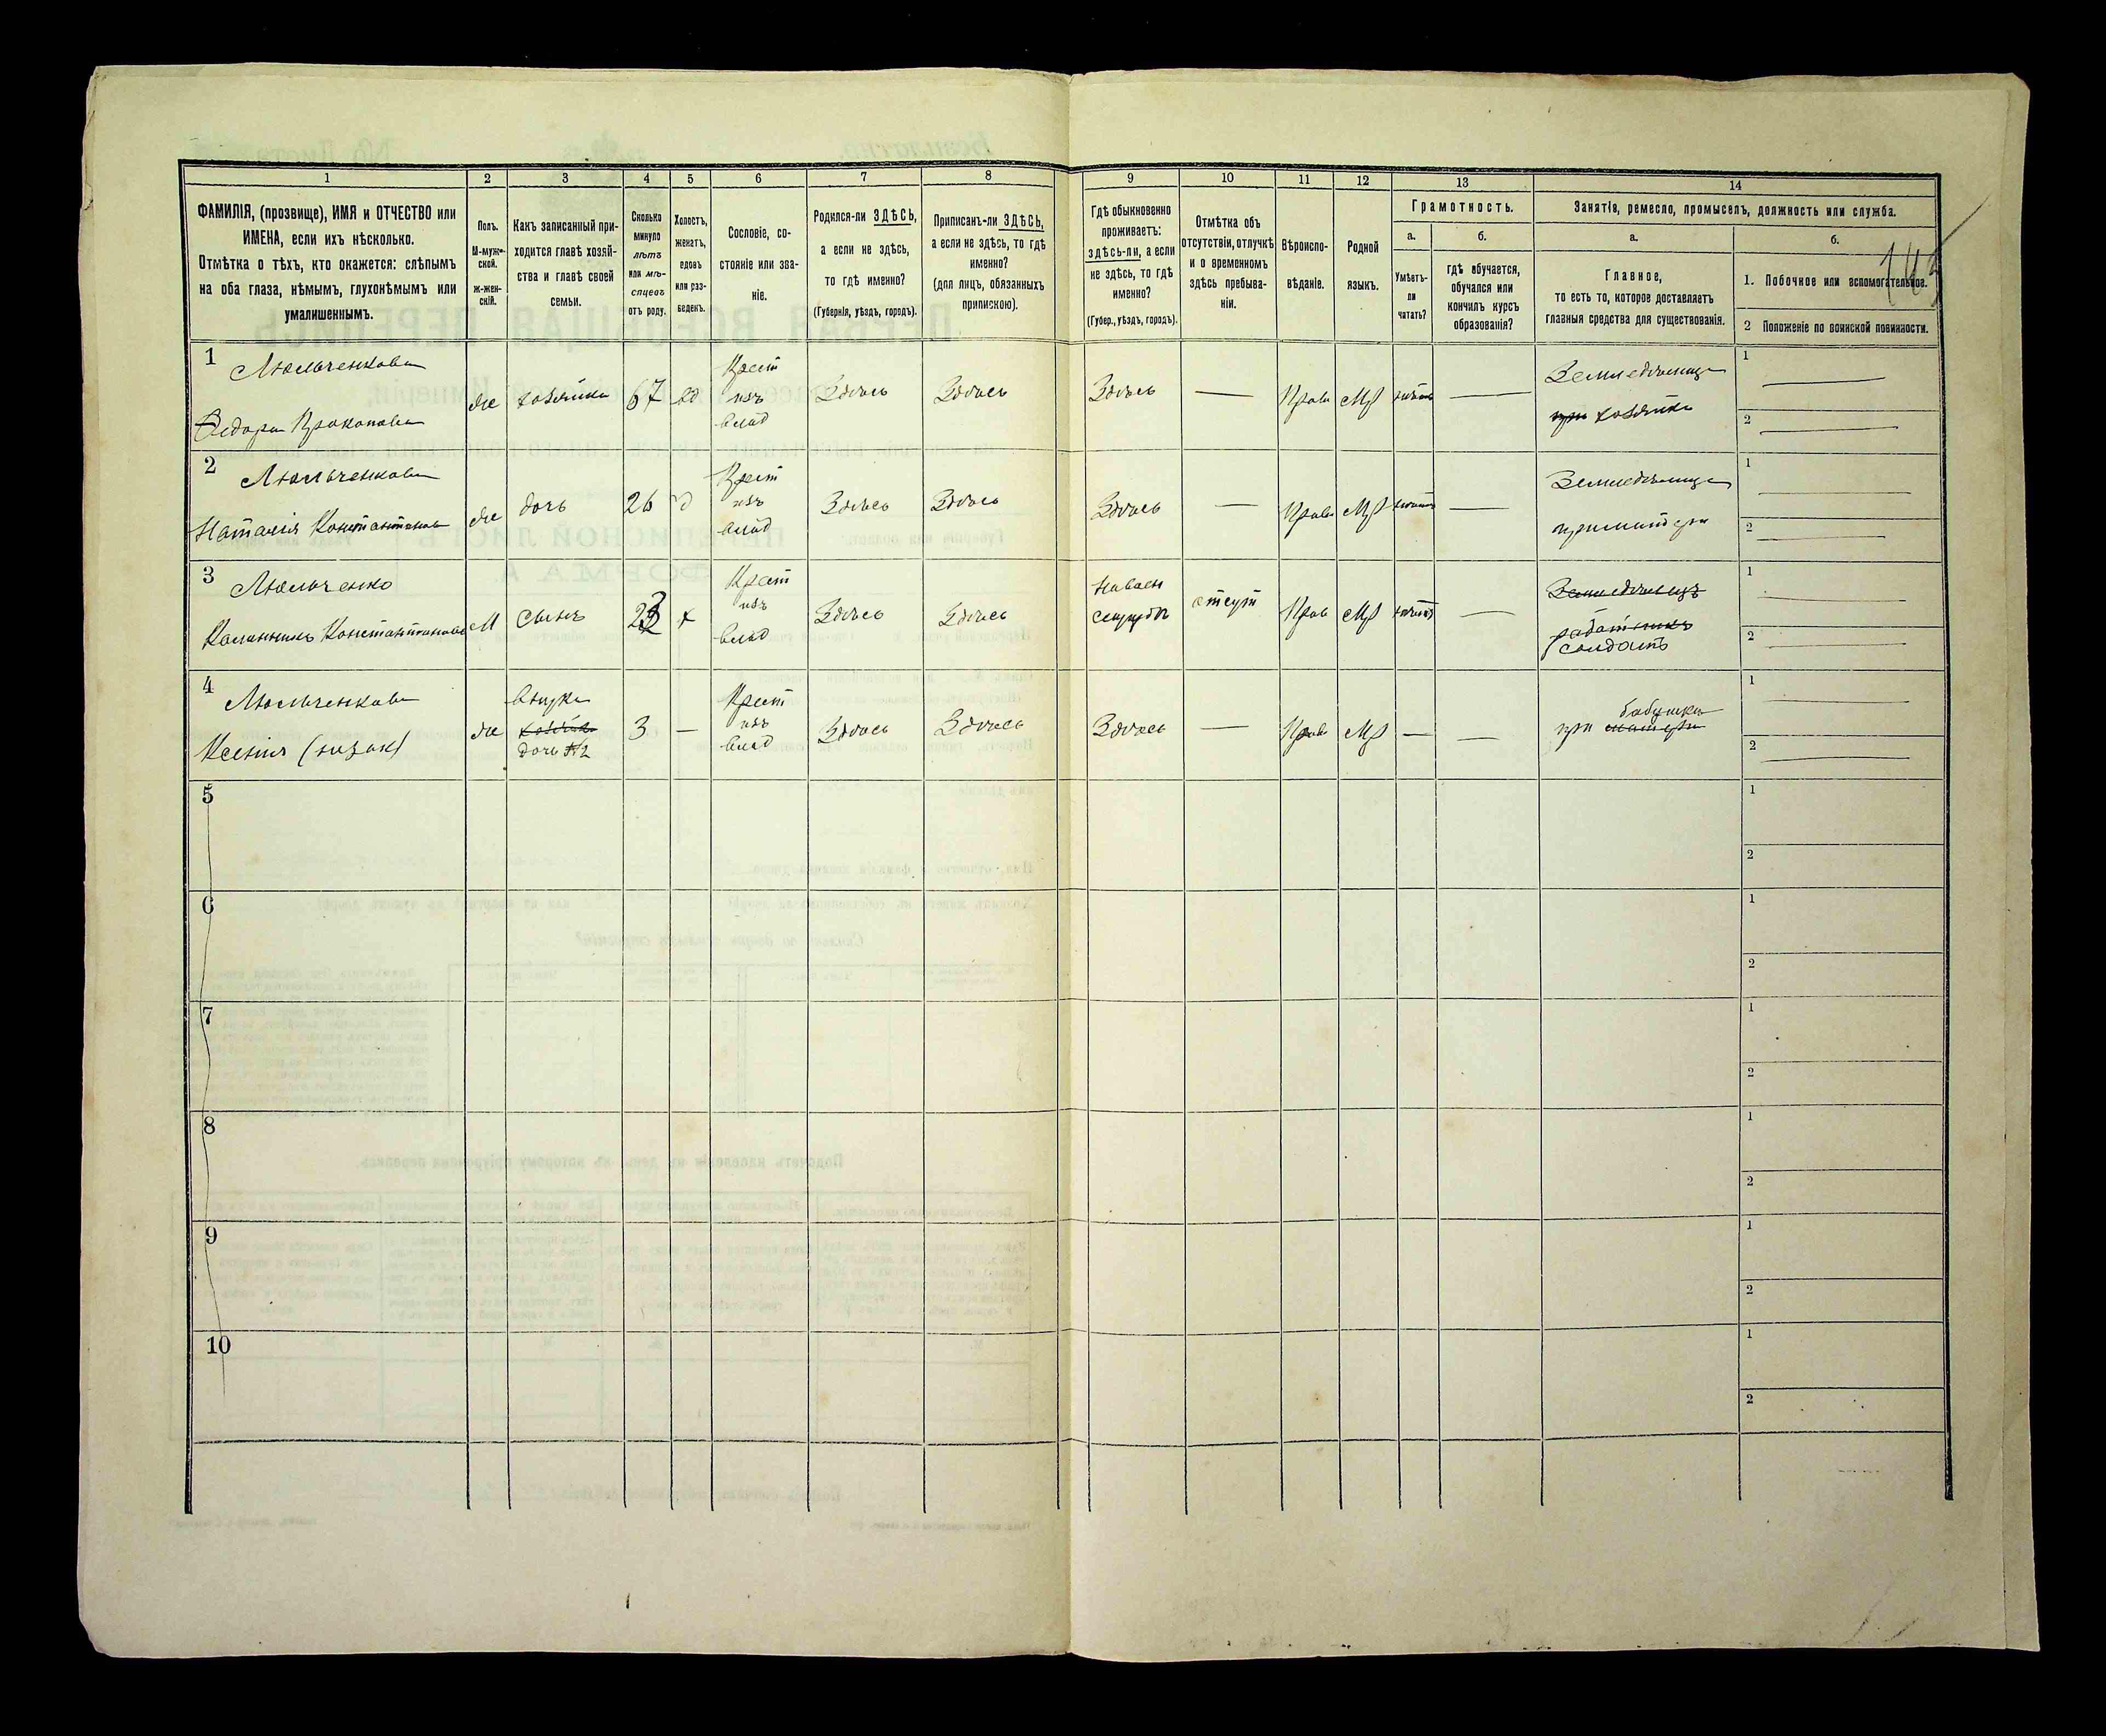 1 2 3 4 5 6 7 8 9 10 11 12 13 14
ФАМИЛІЯ, (прозвище), ИМЯ и ОТЧЕСТВО или
ИМЕНА, если ихъ нѣсколько.
Отмѣтка о тѣхъ, кто окажется: слѣпымъ
на оба глаза, нѣмымъ, глухонѣмымъ или
умалишеннымъ.
Полъ.
М-муж-
ской.
ж-жен-
скій.
Какъ записанный при-
ходится главѣ хозяй-
ства и главѣ своей
семьи.
Сколько
минуло
лѣтъ
или мѣ-
сяцевъ
отъ роду.
Холостъ,
женатъ,
вдовъ
или раз-
веденъ.
Сословіе, со-
стояніе или зва-
ніе.
Родился-ли ЗДѢСЬ,
а если не здѣсь,
то гдѣ именно?
(Губернія, уѣздъ, городъ).
Приписанъ-ли ЗДѢСЬ,
а если не здѣсь, то гдѣ
именно?
(для лицъ, обязанныхъ
припискою).
Гдѣ обыкновенно
проживаетъ:
здѣсь-ли, а если
не здѣсь, то гдѣ
именно?
(Губер., уѣздъ, городъ).
Отмѣтка объ
отсутствіи, отлучкѣ
и о временномъ
здѣсь пребыва-
ніи.
Вѣроиспо-
вѣданіе.
Родной
языкъ.
Грамотность.
а.
Умѣетъ-
ли
читать?
б.
гдѣ обучается,
обучался или
кончилъ курсъ
образованія?
Занятія, ремесло, промыселъ, должность или служба.
а.
Главное,
то есть то, которое доставляетъ
главныя средства для существованія.
б.
1. Побочное или вспомогательное.
2 Положеніе по воинской повинности.
1 Люльченкова
Федора Прокопова
же хозяйка 67 вд
Крест
изъ
влад
Здѣсь Здѣсь Здѣсь — Прав МР —
Земледѣлица
при хозяйка
1 —
2 —
2 Люльченкова
Наталія Константинова
же дочь 26
Крест
изъ
влад
Здѣсь Здѣсь Здѣсь — Прав МР —
Земледѣлица
при матери
1 —
2 —
3 Люльченко
Константинова
М сынъ х
Крест
изъ
влад
Здѣсь Здѣсь
отсут Прав МР —
Земледѣлецъ
работникъ
солдатъ
1 —
2 —
4 Люльченкова
Ксенія
же
внучка
дочь №2
3 —
Крест
изъ
влад
Здѣсь Здѣсь Здѣсь — Прав МР — —
бабушки
при матери
1 —
2 —
5 1
2
6 1
2
7 1
2
8 1
2
9 1
2
10 1
2